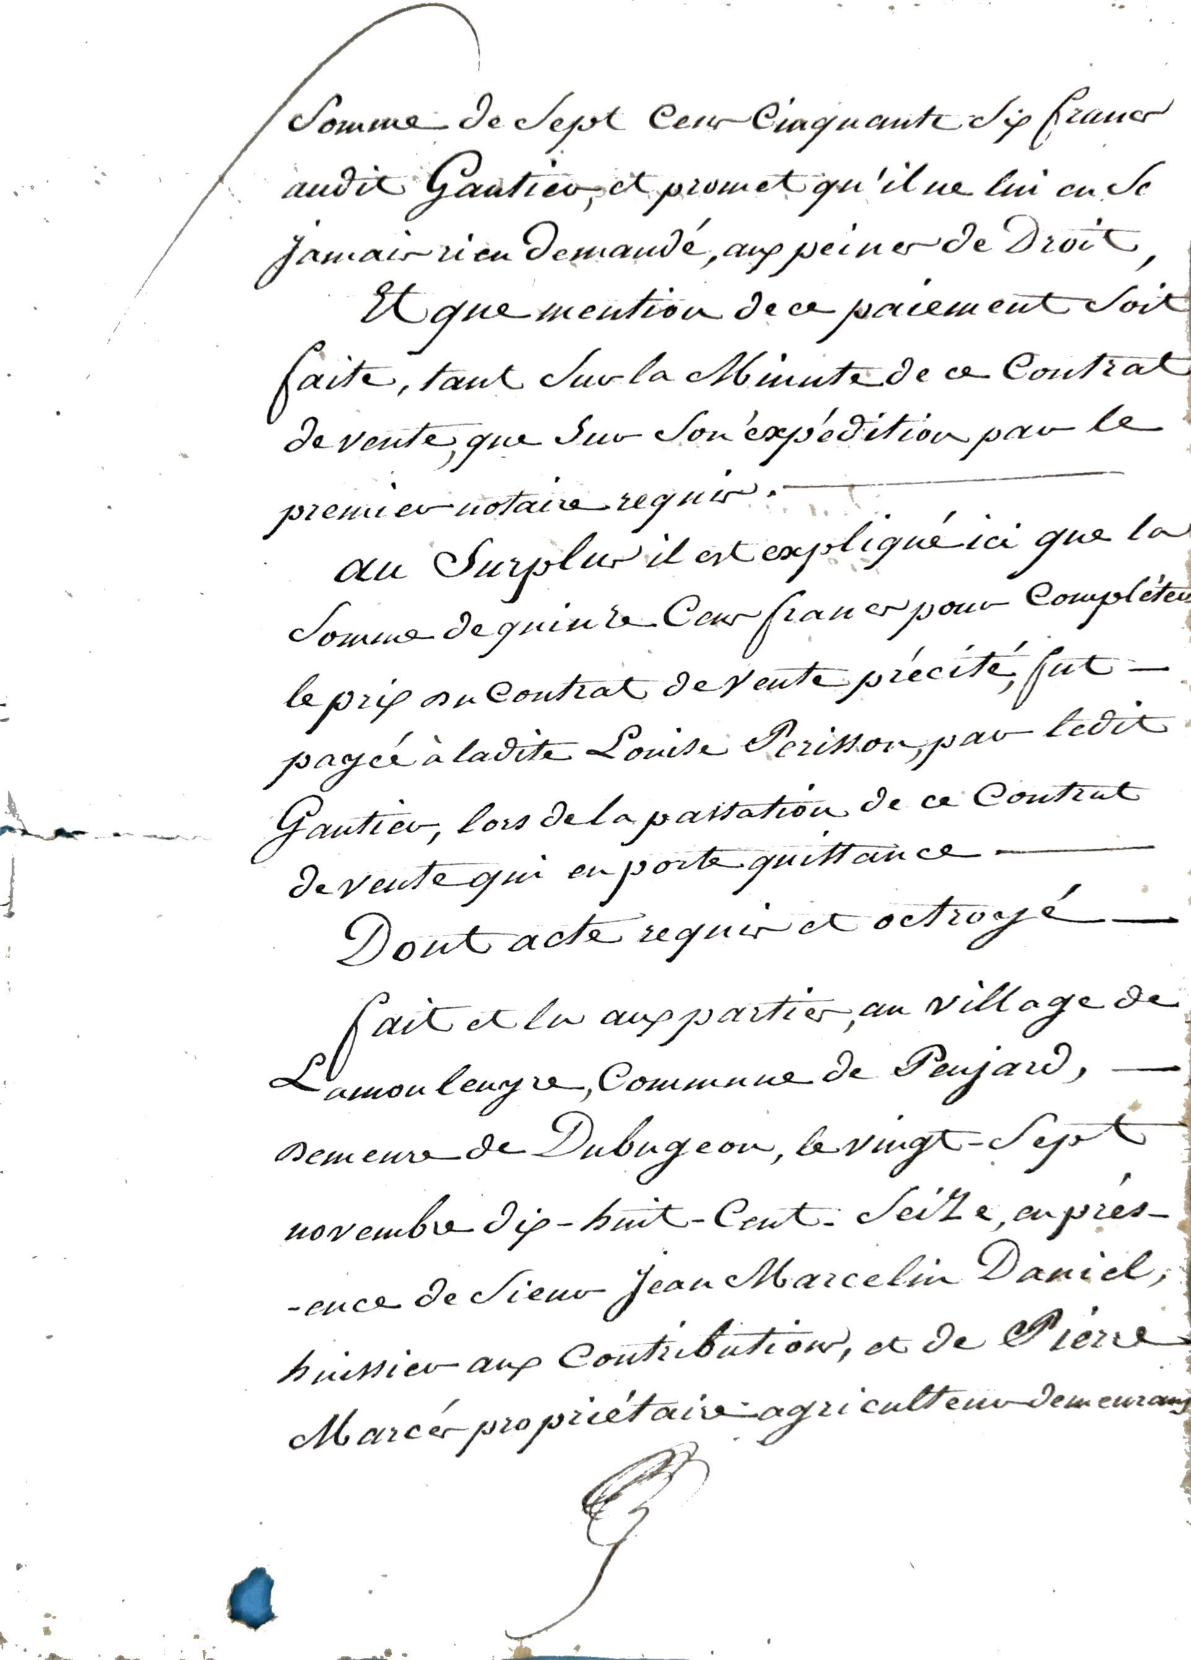 Somme de Sept Cens Cinquante Six francs
audit Gautier, et promet qu'il ne lui en Se
jamais rien demandé, aux peines de Droit,
Et que mention de ce paiement Soit
faite, tant Sur la Minute de ce Contrat
de vente, que Sur Son expédition par le
premier notaire requis.
au Surplus il est expliqué ici que la
Somme de quinze Cens francs pour Compléter
le prix du Contrat de vente précité, fut
payée à ladite Louise Perisson, par ledit
Gautier, lors de la passation de ce Contrat
de vente qui en porte quittance
Dont acte requis et octroyé
fait et lu aux parties, au village de
Lamouleyre, Commune de Peujard,
demeure de Dubugeon, le vingt-Sept
novembre dix-huit-Cent-Seize, en prés-
-ence de Sieur Jean Marcelin Daniel,
huissier aux Contributions, et de Pierre
Marcés propriétaire-agriculteur demeurans